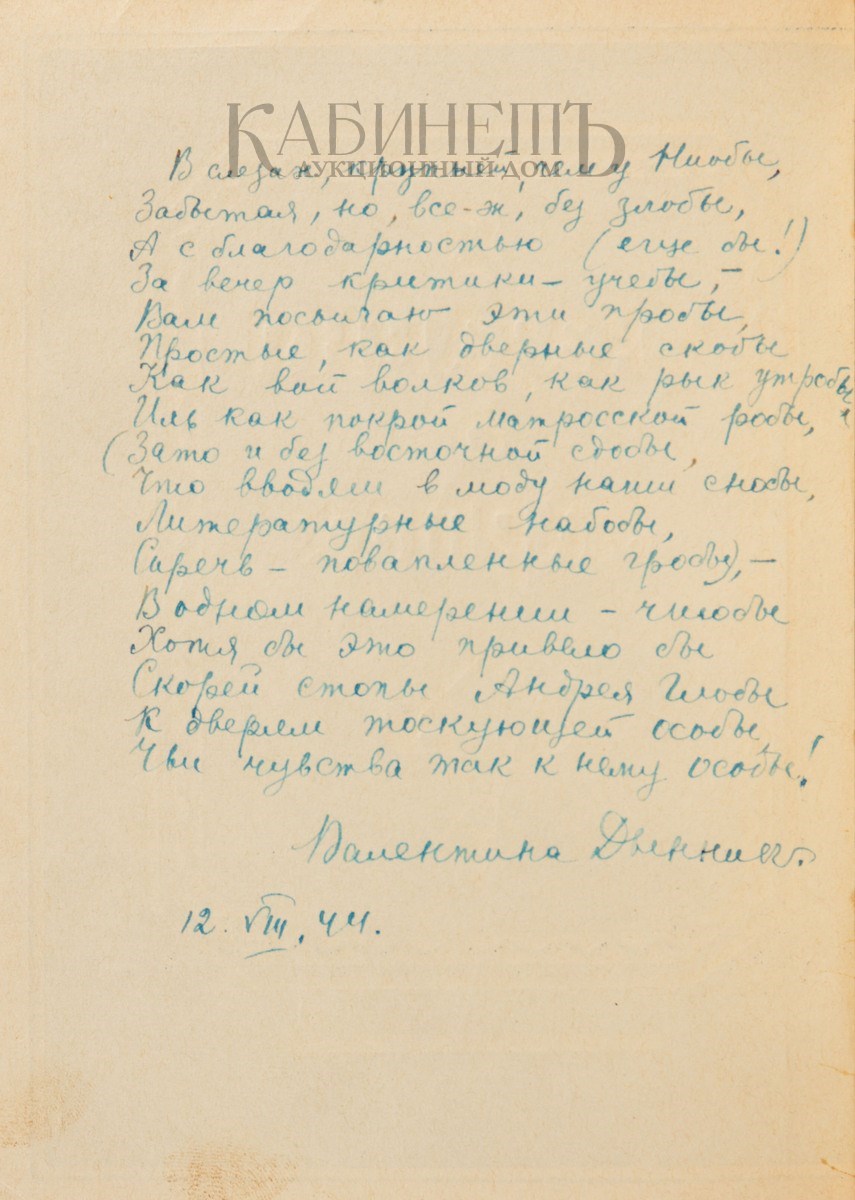 КАБИНЕТЪ
АУКЦИОННЫЙ ДОМ
В слезах, крупней, чем у Ниобы,
Забытая, но, все-ж, без злобы,
А с благодарностью (еще бы!)
За вечер критики – учебы, –
Вам посылаю эти пробы,
Простые, как дверные скобы
Как вой волков, как рык утробы
Иль как покрой матросской робы,
(Зато и без восточной сдобы,
Что вводят в моду наши снобы,
Литературные набобы,
Сиречь – повапленные гробы), –
В одном намерении – чтобы
Хотя бы это привело бы
Скорей стопы Андрея Глобы
К дверям тоскующей особы,
Чьи чувства так к нему особы!
Валентина Дынник.
12. VIII. 44.